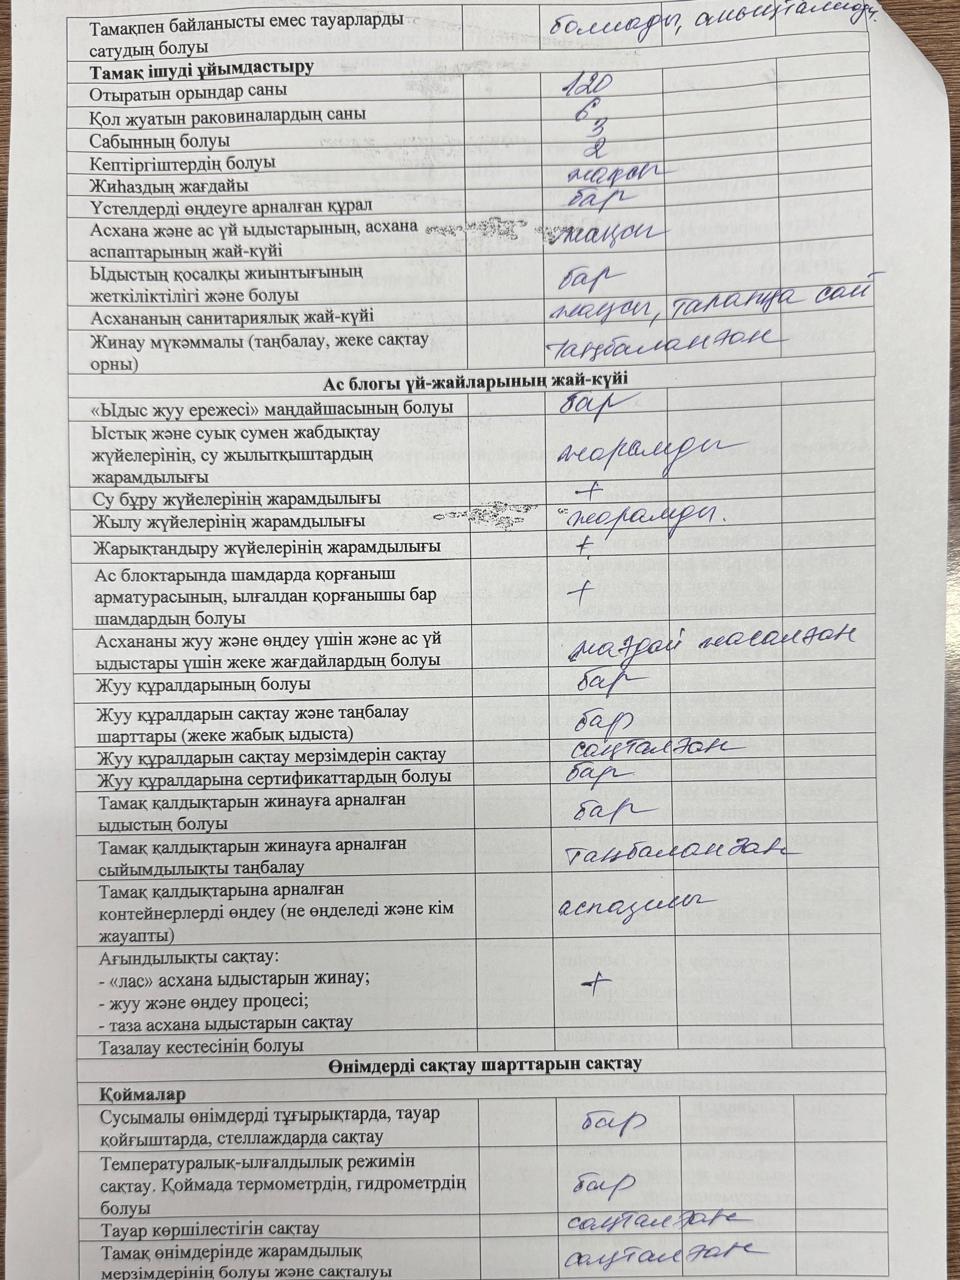 Тамақпен байланысты емес тауарларды болмады, анықталмады.
сатудың болуы
Тамақ ішуді ұйымдастыру
Отыратын орындар саны 120
Қол жуатын раковиналардың саны 6
Сабынның болуы 3
Кептіргіштердің болуы 2
Жиһаздың жағдайы жақсы
Үстелдерді өңдеуге арналған құрал бар
Асхана және ас үй ыдыстарының, асхана жақсы
аспаптарының жай-күйі
Ыдыстың қосалқы жиынтығының бар
жеткіліктілігі және болуы
Асхананың санитариялық жай-күйі жақсы, талапқа сай
Жинау мүкәммалы (таңбалау, жеке сақтау таңбаланған
орны)
Ас блогы үй-жайларының жай-күйі
«Ыдыс жуу ережесі» маңдайшасының болуы бар
Ыстық және суық сумен жабдықтау
жүйелерінің, су жылытқыштардың жарамды
жарамдылығы
Су бұру жүйелерінің жарамдылығы +
Жылу жүйелерінің жарамдылығы жарамды.
Жарықтандыру жүйелерінің жарамдылығы +
Ас блоктарында шамдарда қорғаныш
арматурасының, ылғалдан қорғанышы бар +
шамдардың болуы
Асхананы жуу және өңдеу үшін және ас үй жағдай жасалған
ыдыстары үшін жеке жағдайлардың болуы
Жуу құралдарының болуы бар
Жуу құралдарын сақтау және таңбалау бар
шарттары (жеке жабық ыдыста)
Жуу құралдарын сақтау мерзімдерін сақтау сақталған
Жуу құралдарына сертификаттардың болуы бар
Тамақ қалдықтарын жинауға арналған бар
ыдыстың болуы
Тамақ қалдықтарын жинауға арналған таңбаланған
сыйымдылықты таңбалау
Тамақ қалдықтарына арналған
контейнерлерді өңдеу (не өңделеді және кім аспазшы
жауапты)
Ағындылықты сақтау:
- «лас» асхана ыдыстарын жинау; +
- жуу және өңдеу процесі;
- таза асхана ыдыстарын сақтау
Тазалау кестесінің болуы
Өнімдерді сақтау шарттарын сақтау
Қоймалар
Сусымалы өнімдерді тұғырықтарда, тауар бар
қойғыштарда, стеллаждарда сақтау
Температуралық-ылғалдылық режимін
сақтау. Қоймада термометрдің, гидрометрдің бар
болуы
Тауар көршілестігін сақтау сақталған
Тамақ өнімдерінде жарамдылық сақталған
мерзімдерінің болуы және сақталуы